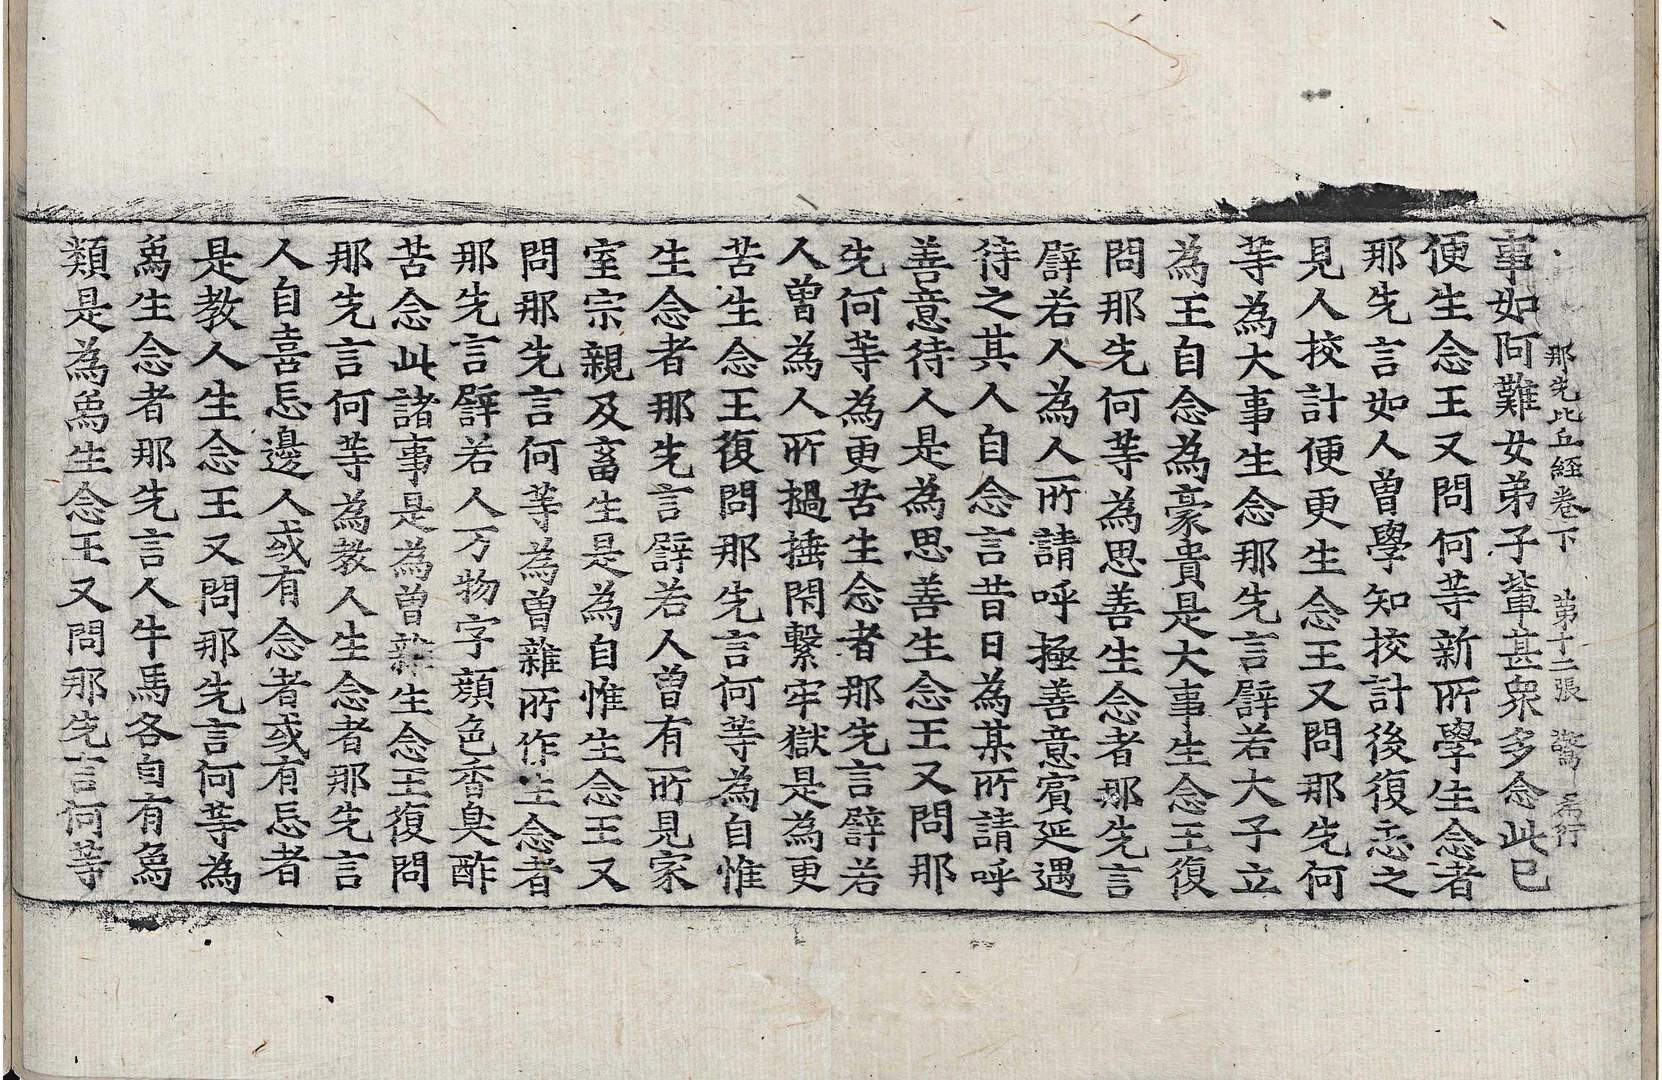 那先比丘経卷下　第十二張　驚
事如阿難女弟子輩甚衆多念此已
便生念王又問何等新所學生念者
那先言如人曾學知挍計後復忘之
見人挍計便更生念王又問那先何
等為大事生念那先言譬若大子立
為王自念為豪貴是大事生念王復
問那先何等為思善生念者那先言
譬若人為人所請呼極善意賓延遇
待之其人自念言昔日為某所請呼
善意待人是為思善生念王又問那
先何等為更苦生念者那先言譬若
人曾為人所撾捶閇繫牢獄是為更
苦生念王復問那先言何等為自惟
生念者那先言譬若人曾有所見家
室宗親及畜生是為自惟生念王又
問那先言何等為曾雜所作生念者
那先言譬若人万物字顏色香臭酢
苦念此諸事是為曾雜生念王復問
那先言何等為教人生念者那先言
人自喜忘邊人或有念者或有忘者
是教人生念王又問那先言何等為
為生念者那先言人牛馬各自有為
類是為為生念王又問那先言何等